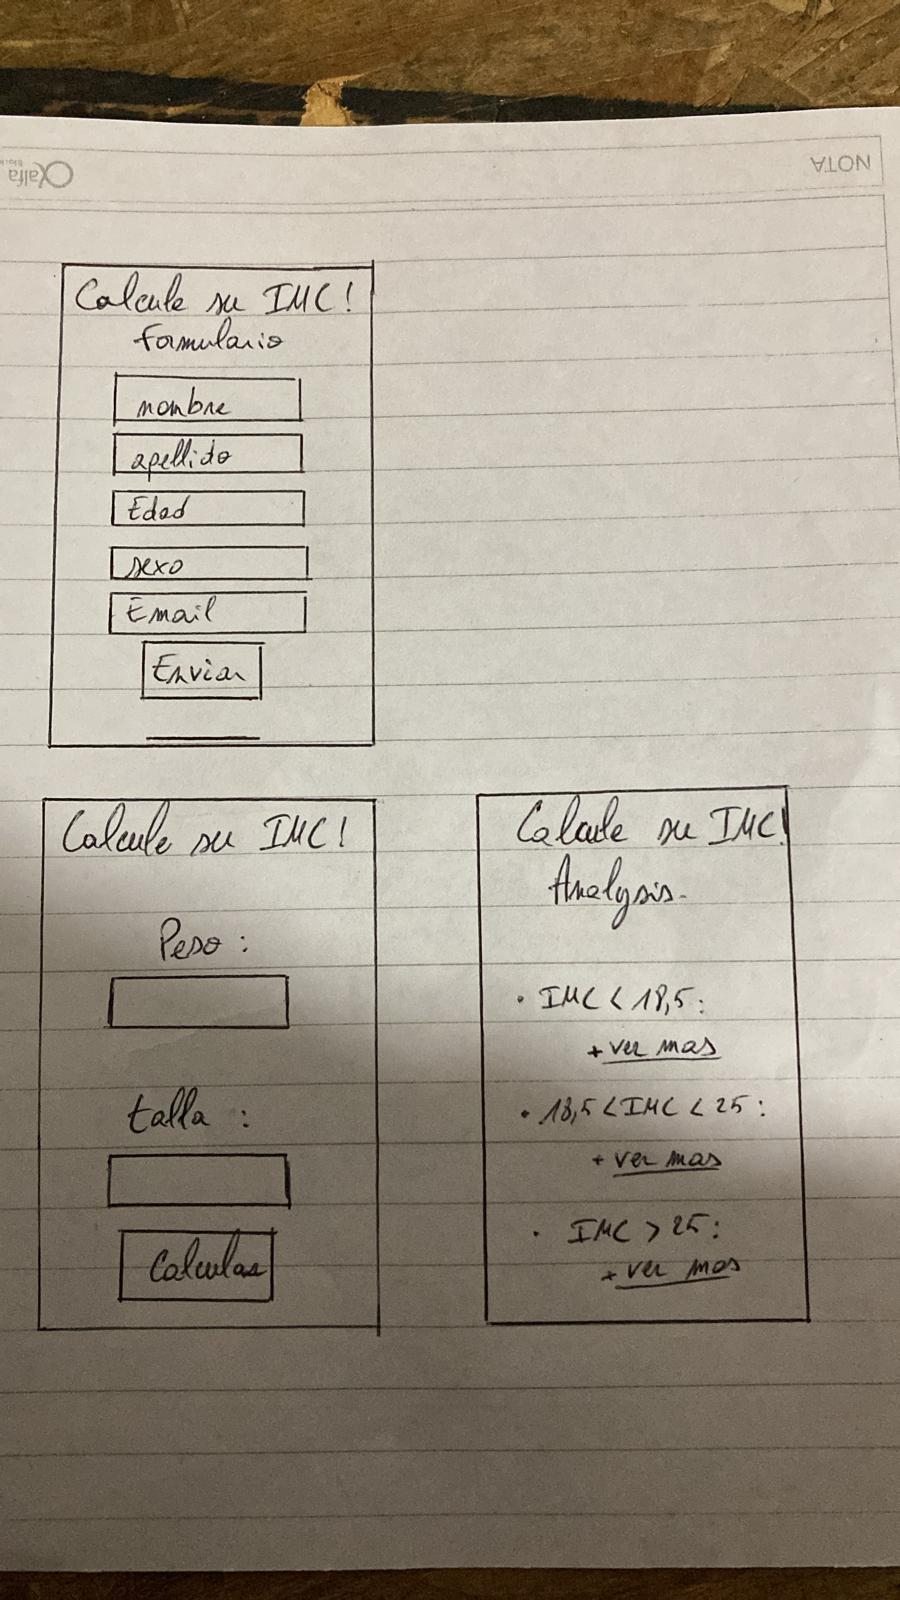 NOTA
alfa
Calcule su IMC!
formulario
nombre
apellido
Edad
sexo
Email
Enviar
Calcule su IMC!
Peso :
talla :
Calculas
Calcule su IMC!
Analysis.
• IMC < 18,5 :
+ ver mas
• 18,5 < IMC < 25 :
+ ver mas
• IMC > 25 :
+ ver mas